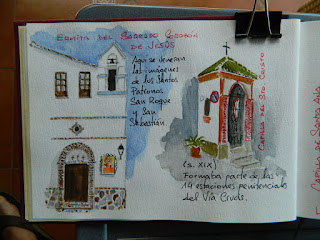 ERMITA DEL SAGRADO CORAZÓN
DE JESÚS
Aquí se veneran
las imágenes
de los Santos
Patronos
San Roque
y San
Sebastián.
CAPILLA DEL STO CRISTO
(s. XIX)
Formaba parte de las
14 estaciones penitenciales
del Vía Crucis.
CAPILLA DE SANTA ANA